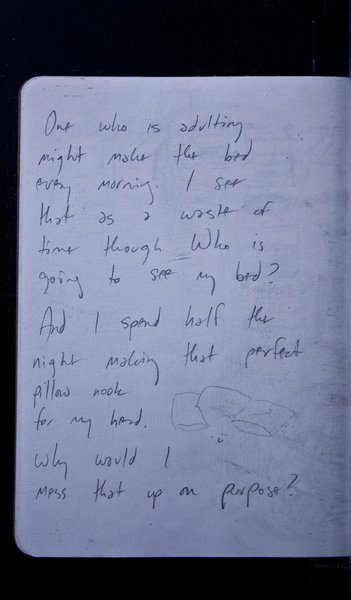 One who is adulting
might make the bed
every morning. I see
that as a waste of
time though Who is
going to see my bed?
And I spend half the
night making that perfect
pillow nook
for my head.
Why would I
mess that up on purpose?